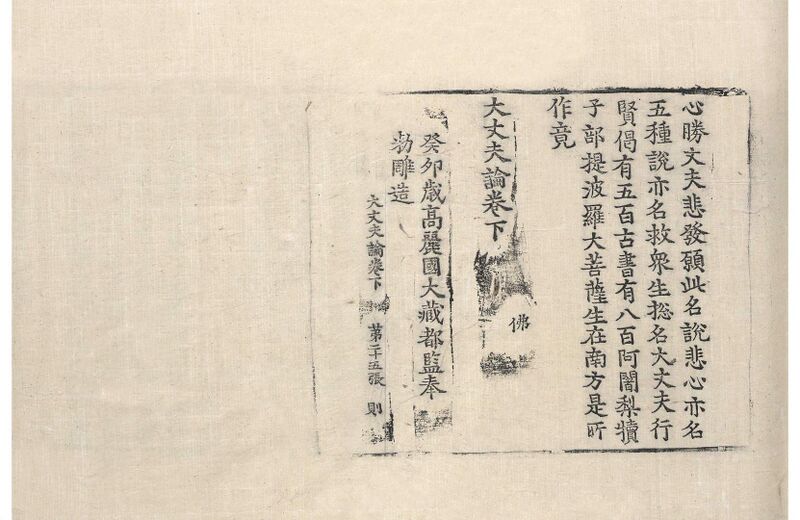 心勝丈夫悲發願此名說悲心亦名
五種說亦名救衆生揔名大丈夫行
賢偈有五百古書有八百阿闍梨犢
子部提波羅大菩薩生在南方是所
作竟
大丈夫論卷下
佛
癸卯歲高麗國大藏都監奉
勑雕造
大丈夫論卷下 第二十五張 則